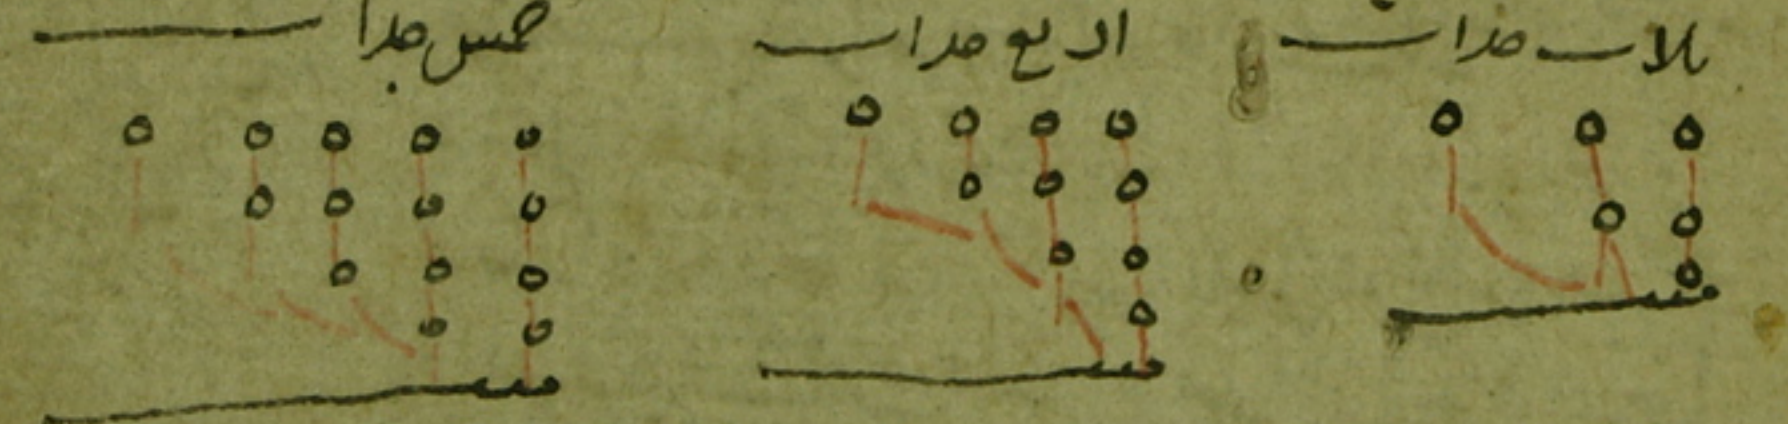 ثلاث جدات
اربع جدات
خمس جدات